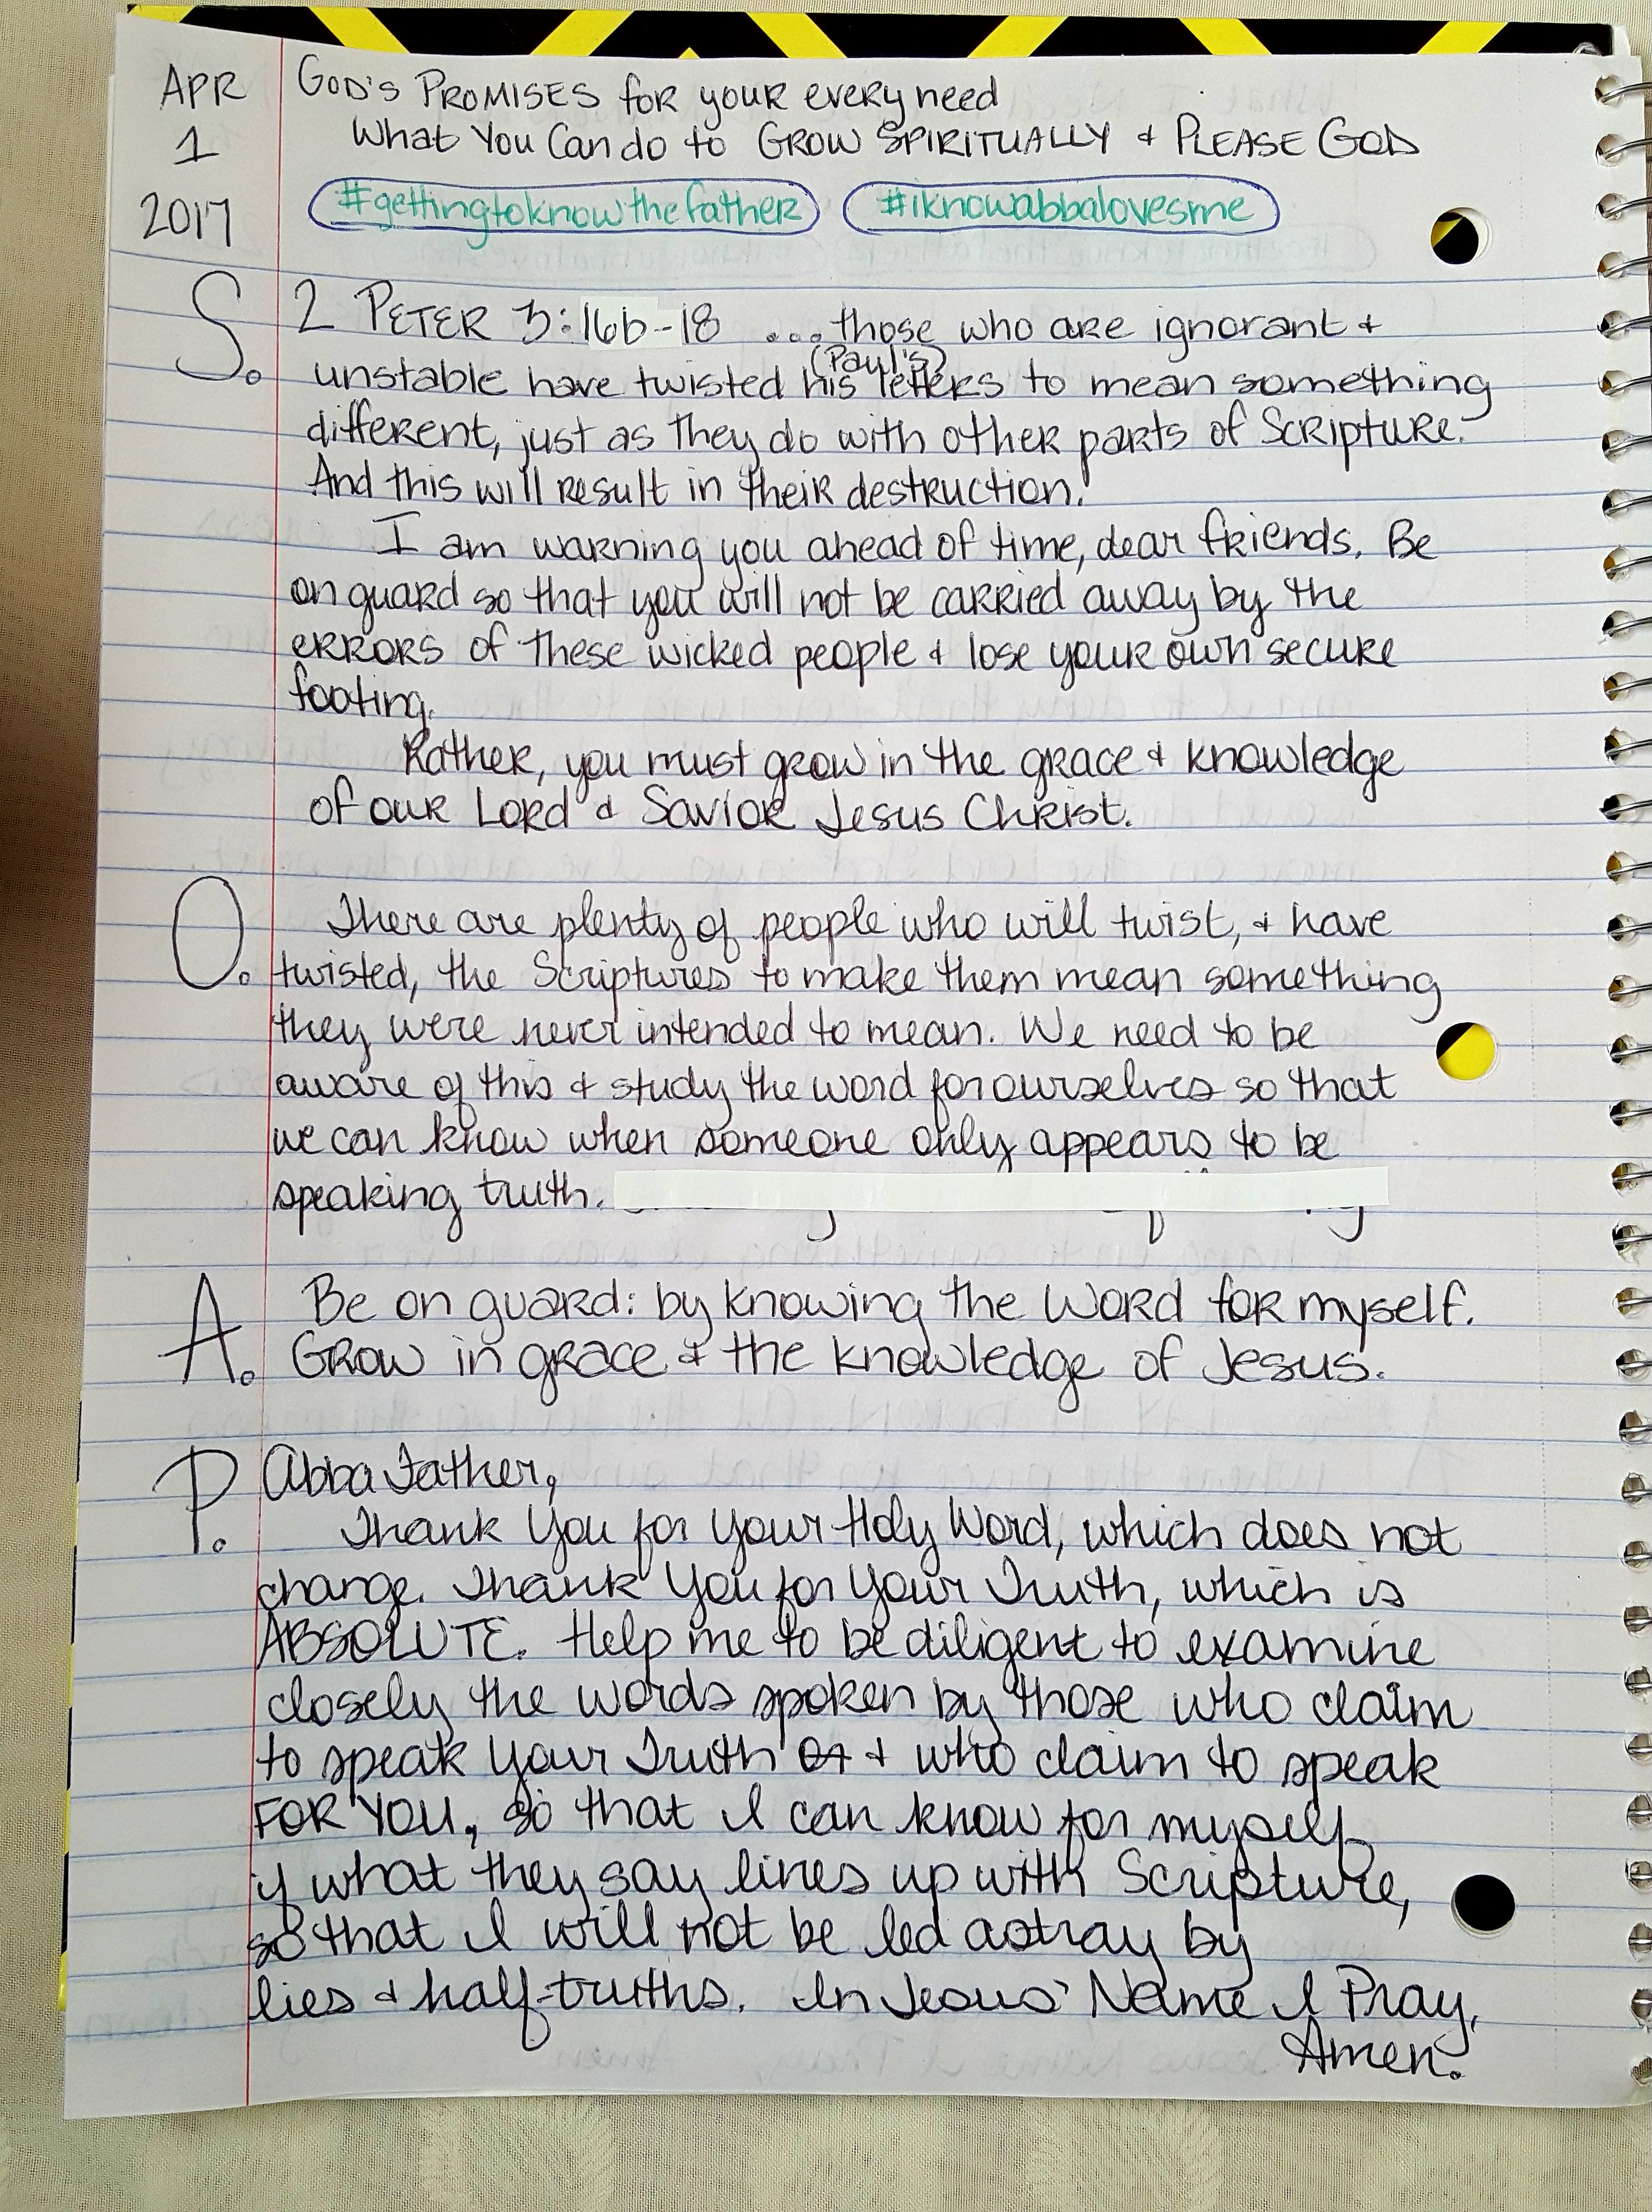 APR
1
2017
God's Promises for your every need
What You Can do to Grow Spiritually & Please God
#gettingtoknowthefather #iknowabbalovesme
S. 2 Peter 3:16b-18 ...those who are ignorant &
(Paul's)
unstable have twisted his letters to mean something
different, just as they do with other parts of Scripture.
And this will result in their destruction.
I am warning you ahead of time, dear friends. Be
on guard so that you will not be carried away by the
errors of these wicked people & lose your own secure
footing.
Rather, you must grow in the grace & knowledge
of our Lord & Savior Jesus Christ.
O. There are plenty of people who will twist, & have
twisted, the Scriptures to make them mean something
they were never intended to mean. We need to be
aware of this & study the word for ourselves so that
we can know when someone only appears to be
speaking truth.
A. Be on guard: by knowing the Word for myself.
Grow in grace & the knowledge of Jesus.
P. Abba Father,
Thank You for Your Holy Word, which does not
change. Thank You for Your Truth, which is
ABSOLUTE. Help me to be diligent to examine
closely the words spoken by those who claim
to speak Your Truth & who claim to speak
FOR YOU, so that I can know for myself
if what they say lines up with Scripture,
so that I will not be led astray by
lies & half-truths. In Jesus' Name I Pray,
Amen.